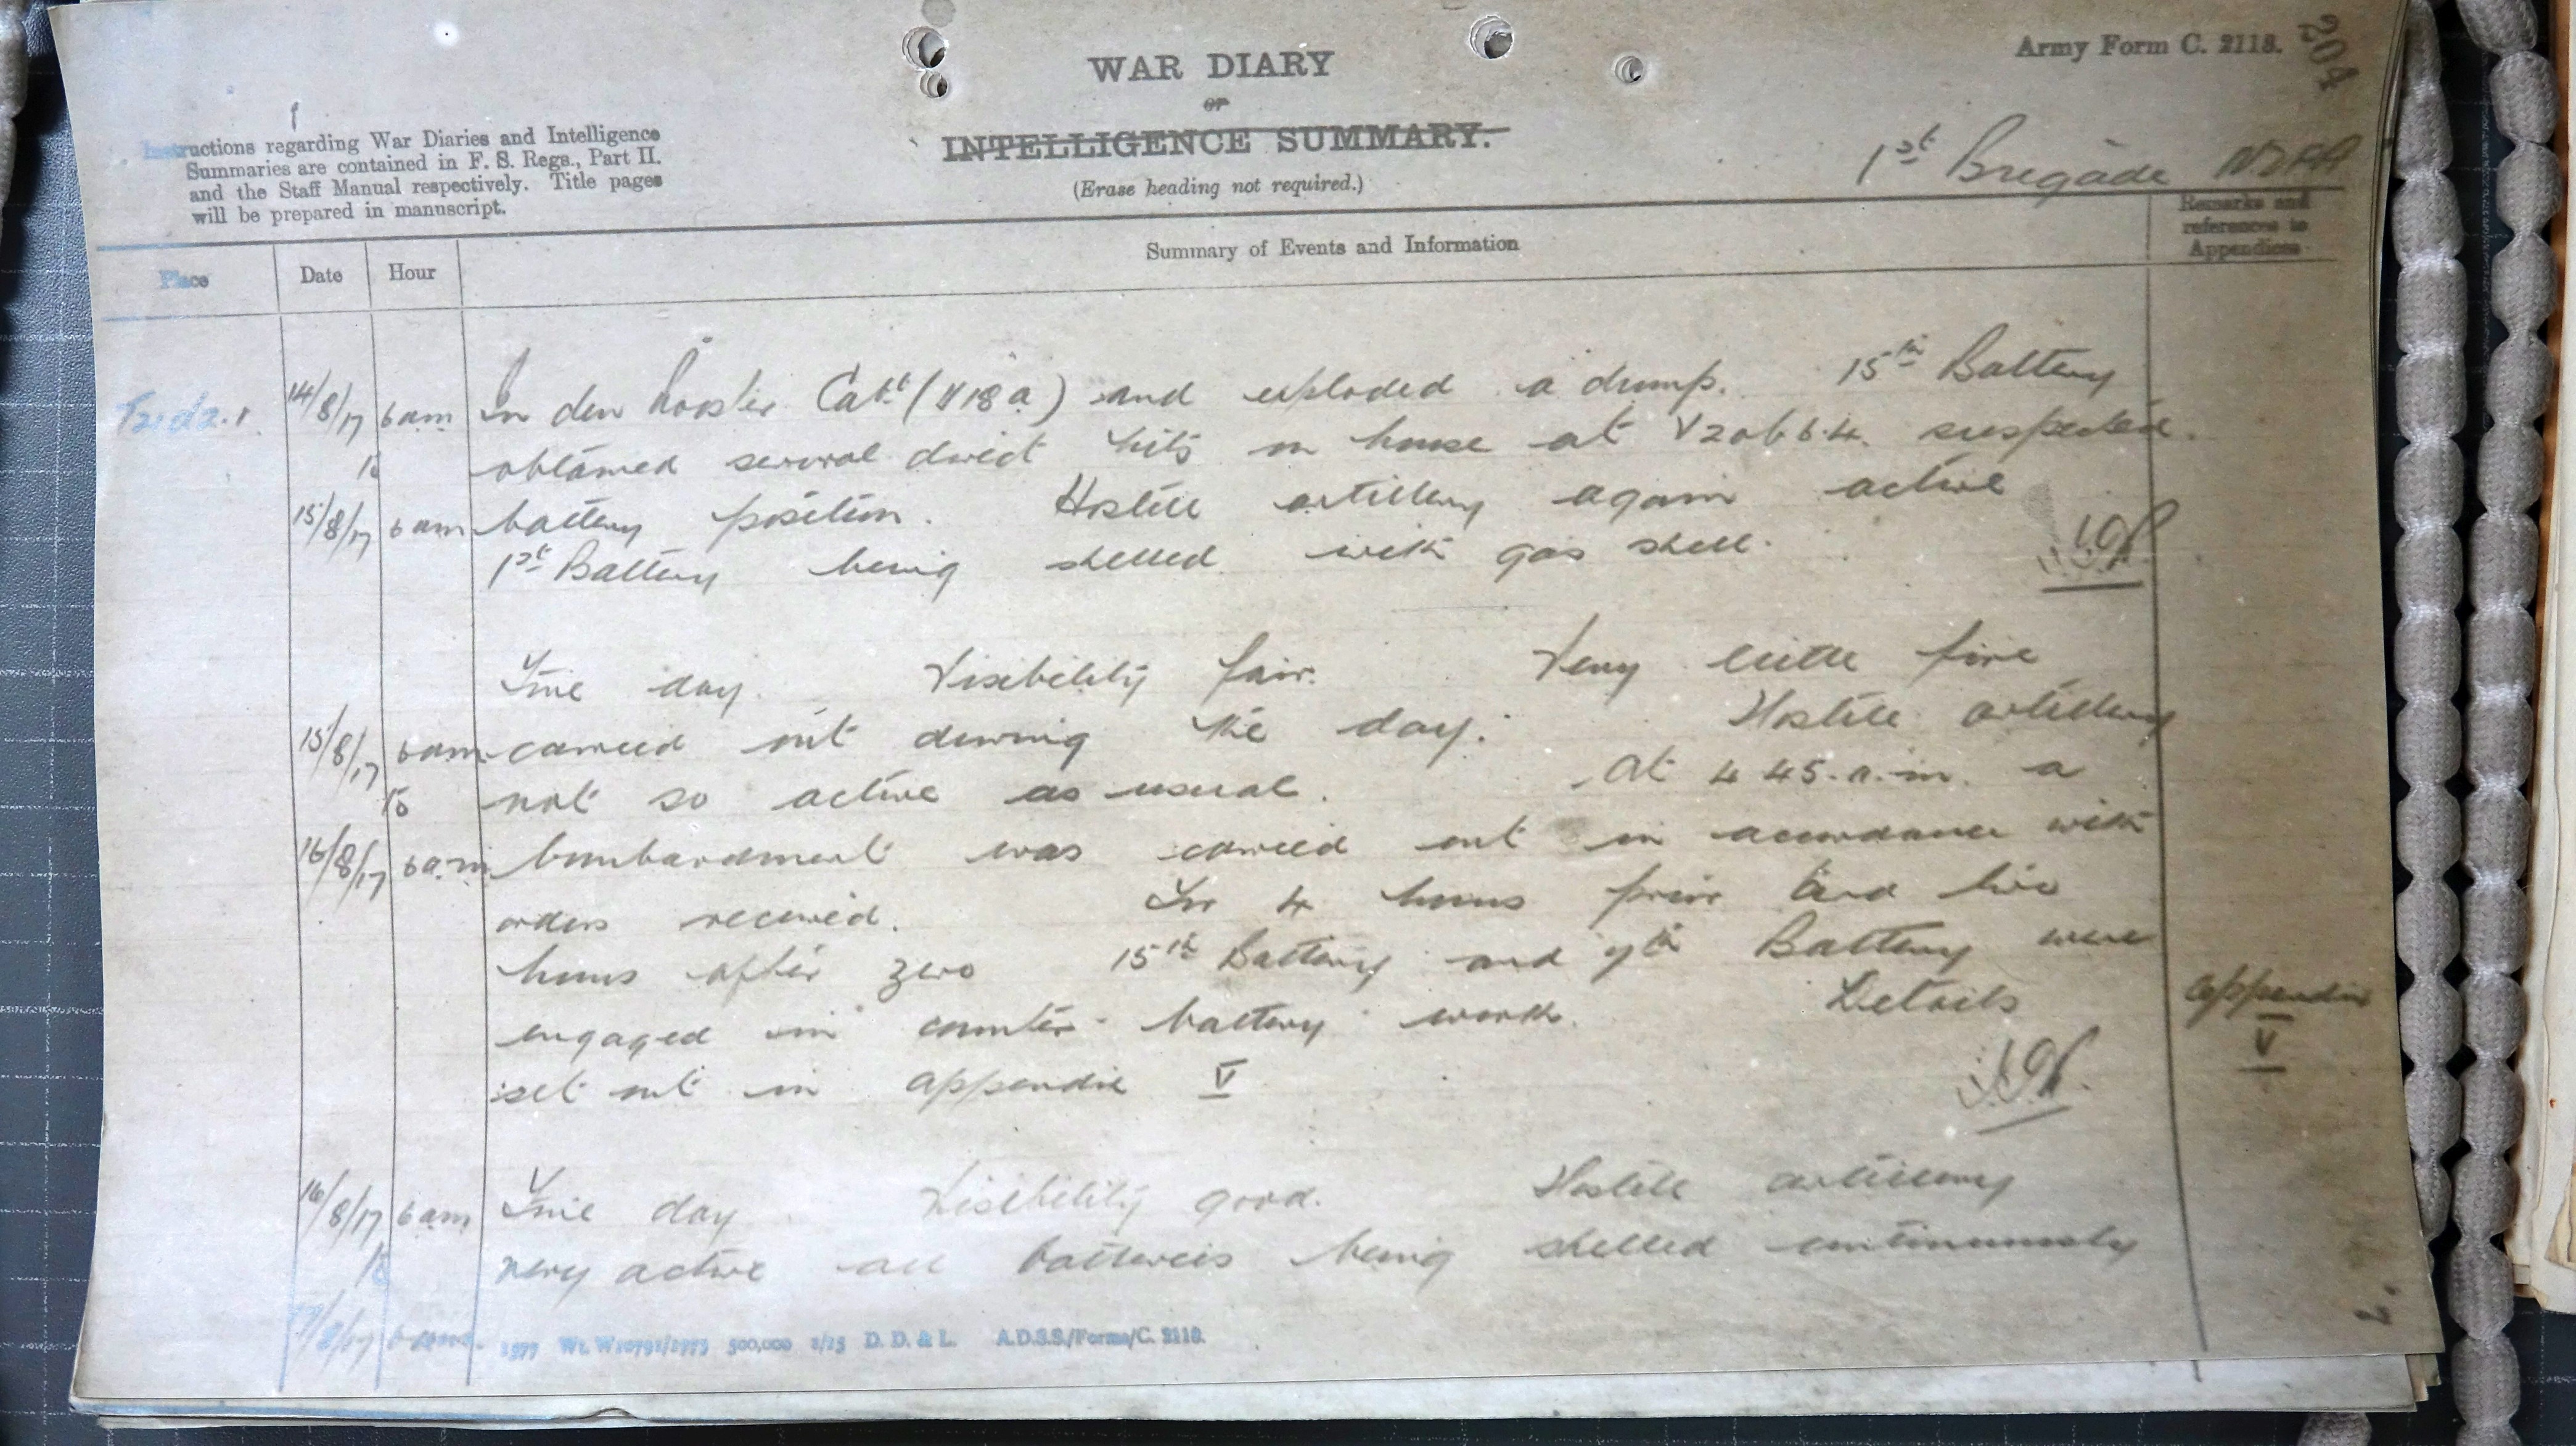 Army Form C. 2118.
204
WAR DIARY
or
INTELLIGENCE SUMMARY.
(Erase heading not required.)
Instructions regarding War Diaries and Intelligence
Summaries are contained in F. S. Regs., Part II.
and the Staff Manual respectively. Title pages
will be prepared in manuscript.
1st Brigade NZFA
Place
Date
Hour
Summary of Events and Information
Remarks and
references to
Appendices
14/8/17 6am In den Cabt (V18a) and exploded a dump. 15th Battery
to obtained several direct hits on house at V20b6.4. suspected
15/8/17 6am battery position. Hostile artillery again active
1st Battery being shelled with gas shell.
Fine day. Visibility fair. Very little fire
15/8/17 6am carried out during the day. Hostile artillery
to not so active as usual. At 4 45. a.m. a
16/8/17 6am bombardment was carried out in accordance with
orders received. For 4 hours prior and two
hours after zero 15th Battery and 7th Battery were
engaged in counter-battery work. Details
set out in appendix V
Appendix
V
16/8/17 6am Fine day Visibility good. Hostile artillery
to very active all batteries being shelled continuously
17/8/17 6am.
1577 Wt. W10791/1773 500,000 1/15 D. D. & L. A.D.S.S./Forms/C. 2118.